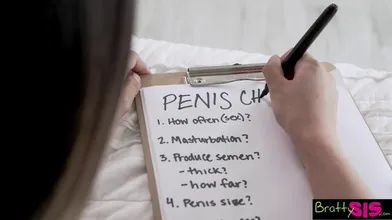 PENIS CH
1. How often (sex)?
2. Masturbation?
3. Produce semen?
- thick?
- how far?
4. Penis size?
Bratty
SIS